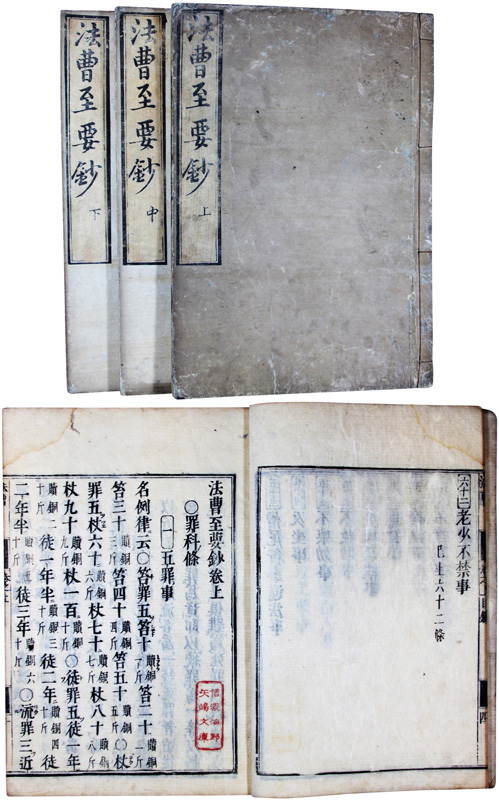 法曹至要鈔 上
法曹至要鈔 中
法曹至要鈔 下
六十二 老少不禁事
已上六十二條
四
法曹至要鈔卷上
〇罪科條
一 五罪事
名例律云〇笞罪五笞十贖銅一斤笞二十贖銅二斤
笞三十贖銅三斤笞四十贖銅四斤笞五十贖銅五斤〇杖
罪五杖六十贖銅六斤杖七十贖銅七斤杖八十贖銅八斤
杖九十贖銅九斤杖一百贖銅十斤〇徒罪五徒一年
贖銅二十斤徒一年半贖銅三十斤徒二年贖銅四十斤徒
二年半贖銅五十斤徒三年贖銅六十斤〇流罪三近
矢嶋文庫